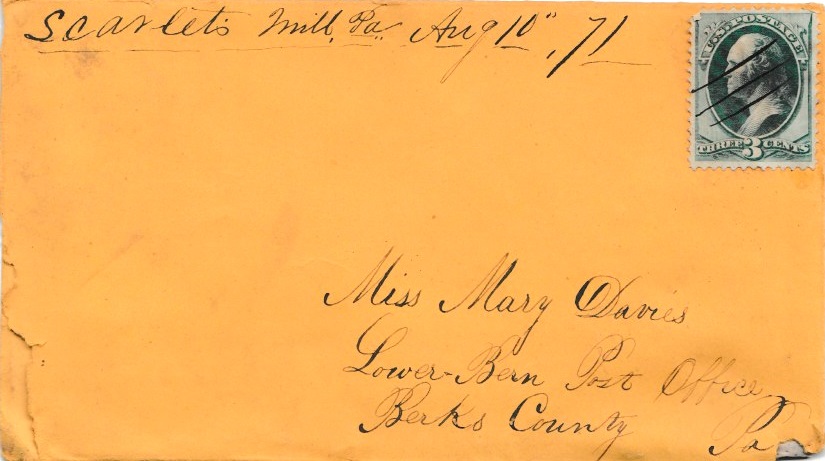 Scarlets Mill, Pa. Aug 10", 71
U.S. POSTAGE
THREE 3 CENTS
Miss Mary Davies
Lower-Bern Post Office
Berks County Pa